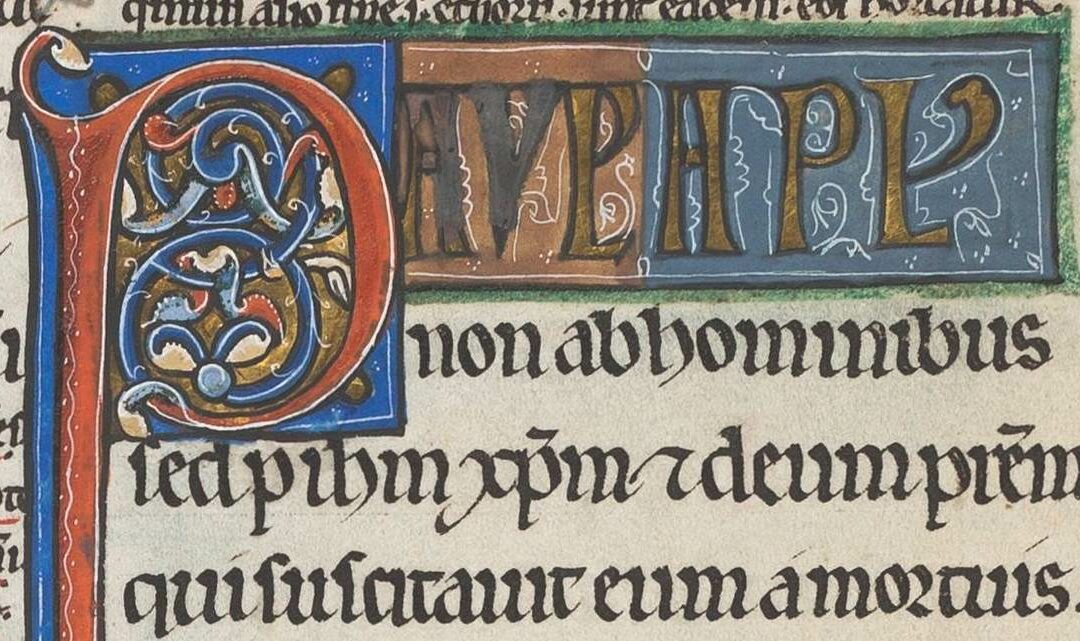 PAVL' APL'
non ab hominibus
sed p ihm xp̄m ⁊ deum prēm
qui suscitauit eum a mortuis.